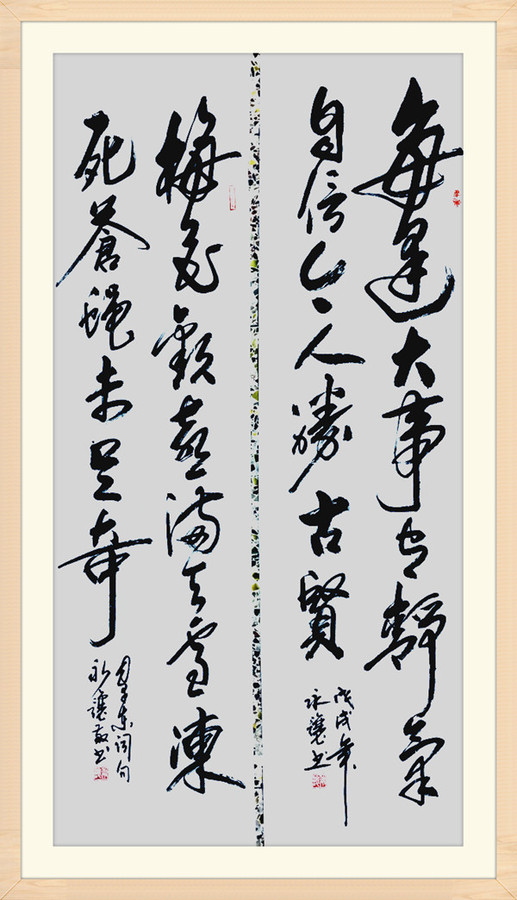 每逢大事有靜氣
自信今人勝古賢
戊戌年
書
梅花歡喜漫天雪凍
死蒼蠅未足奇
毛澤東詞句
敬書